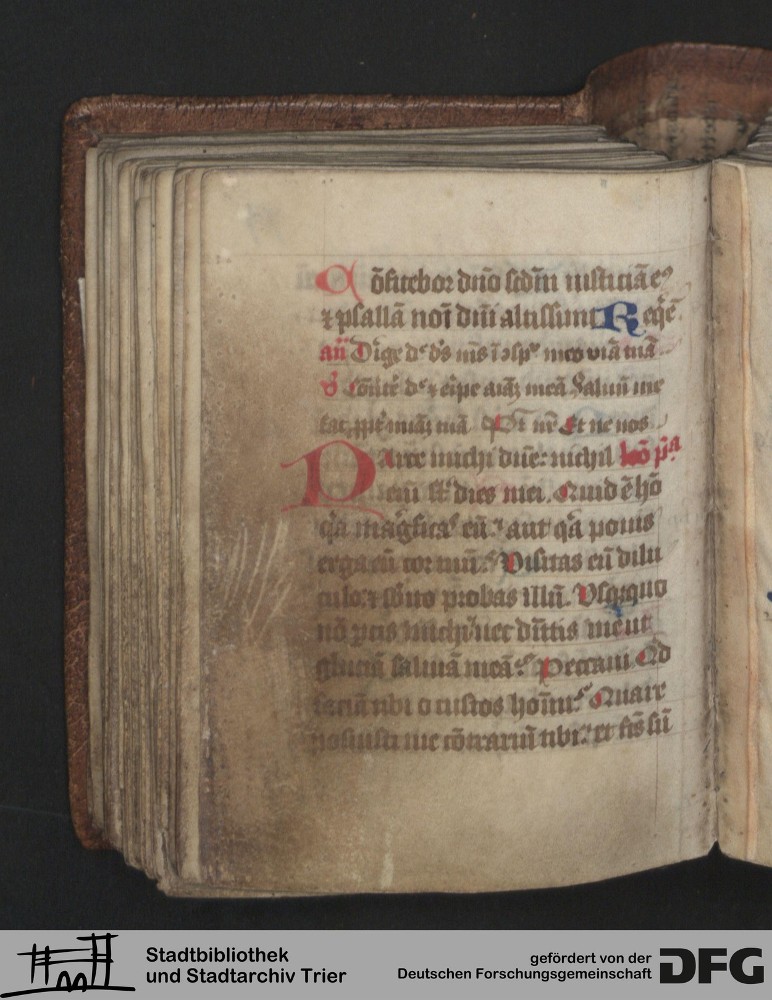 Cōfitebor dn̄o scd̄m iusticiā eꝰ
⁊ psallā noī dn̄i altissimi Reqͥē
an̄ Dirige dͤ dꝰs mꝰs ī ↄspͨ tuo viā meā
Parce michi dn̄e: nichil lcō p̄ͣ
eni st̄ dies mei. Quid ē hō
qͣ magͥficaˢ eū? aut qͣ ponis
erga eū cor tuū? Visitas eū dilu
culo: ⁊ sb̄ito probas illū. Vsq̄quo
nō p̄cis michi/ nec dīttis me ut
glutiā saliuā meā? Peccaui Qͥd
faciā tibi o custos hoīm? Quare
posuisti me cōtrariū tibi? et fc̄s sū
Stadtbibliothek
und Stadtarchiv Trier
gefördert von der
Deutschen Forschungsgemeinschaft
DFG